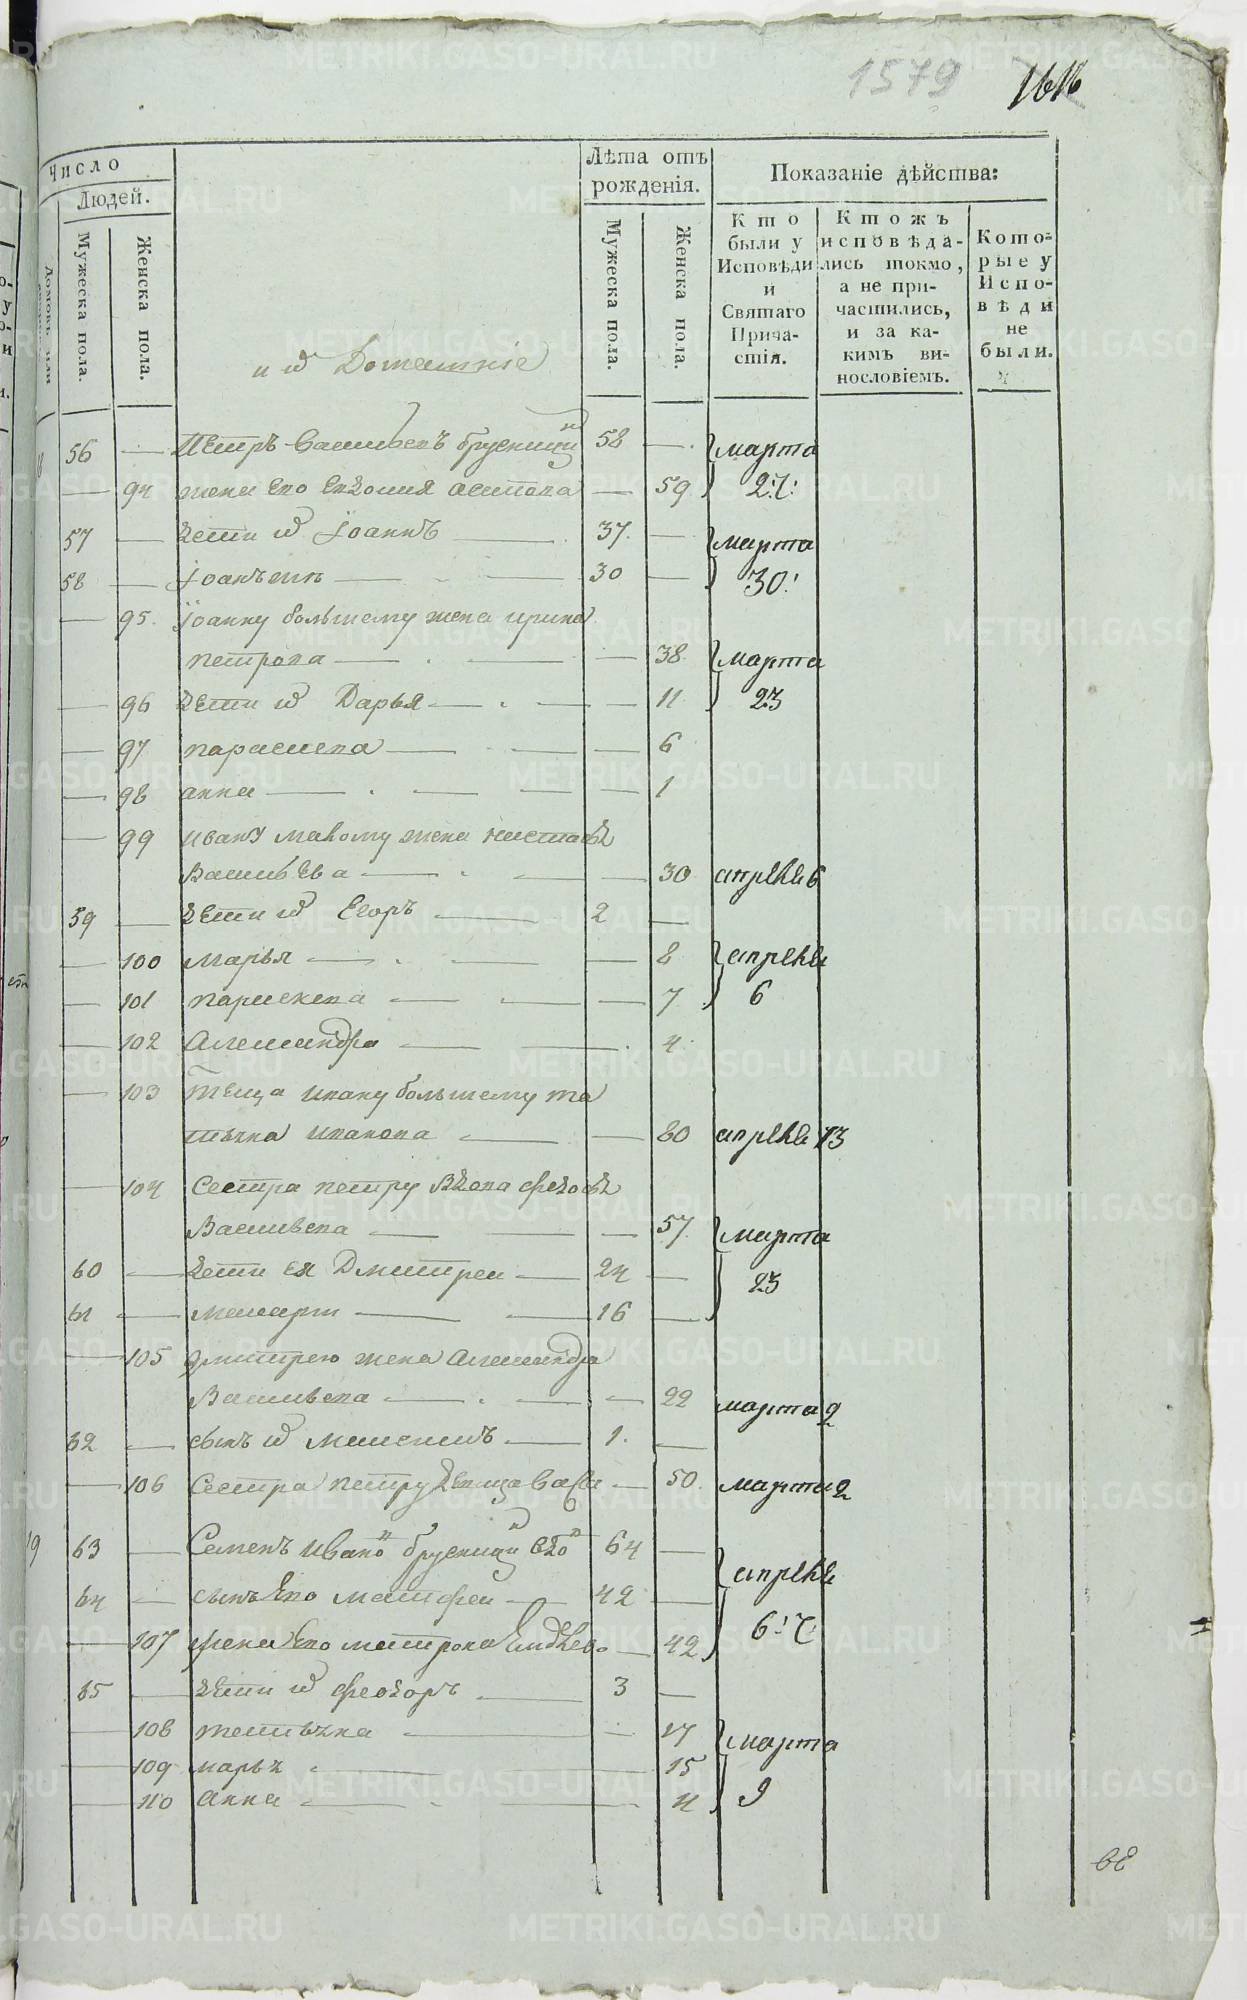 1579 1616
Число
Людей.
Мужеска пола.
Женска пола.
Лѣта отъ рожденія.
Мужеска пола.
Женска пола.
Показаніе дѣйства:
Кто были у Исповѣди и Святаго Причастія.
Ктожъ исповѣдались токмо, а не причастились, и за какимъ винословіемъ.
Которые у Исповѣди не были.
и ихъ Домашніе
56 Петръ Васильевъ брусницын 58 марта
94 жена Его Евдокия осипова 59 27
57 дети их Іоаннъ 37 марта
58 Іоанъ 30 30
95 Іоанну большему жена ирина
петрова 38 марта
96 дети их Дарья 11 23
97 парасковa 6
98 анна 1
99 ивану малому жена
Васильева 30 апреля 6
59 дети их Егоръ 2
100 марья 8 апреля
101 параскева 7 6
102 Александра 4
103 теща ивану большему та
тьяна иванова 80 апреля 13
104 Сестра петру вдова федосья
Васильева 57 марта
60 дети ея Дмитреи 24 23
61 макаръ 16
105 дмитрею жена Александра
Васильева 22 марта 2
62 сынъ их 1
106 Сестра петру девица 50 марта 2
63 Семенъ Ивано брусницын вдо 64 апреля
64 сынъ Его матфеи 42 6
107 жена Его матрона 42
65 дети их феодоръ 3
108 татьяна 17 марта
109 марья 15 9
110 Анна 11